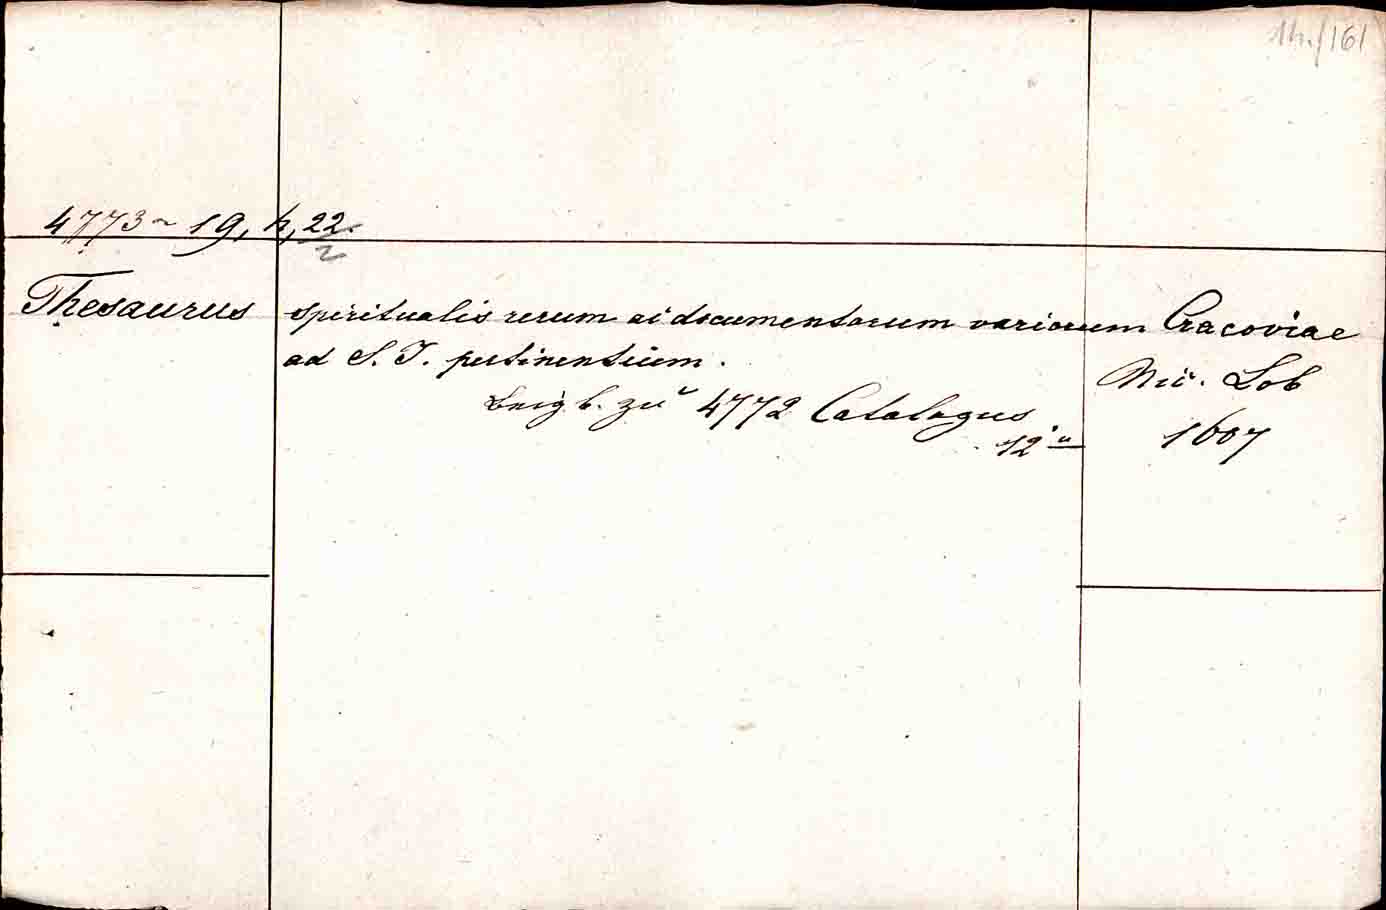 Th./161
4773~ 19, h, 22.
2
Thesaurus spiritualis rerum ac documentorum variorum Cracoviae
ad S. J. pertinentium.
Nic. Lob
Beigb. zu 4772 Catalogus
12°
1607